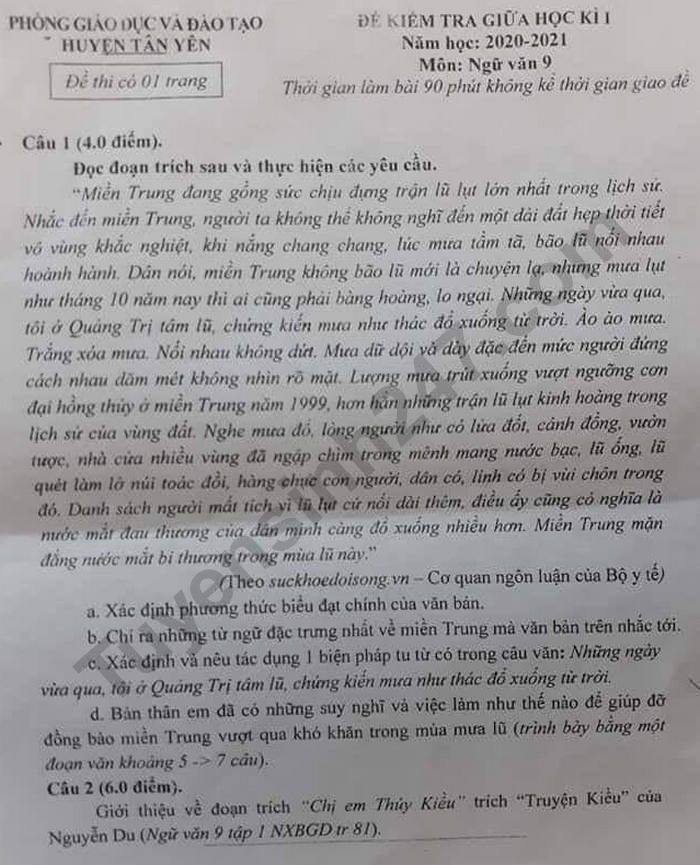 PHÒNG GIÁO DỤC VÀ ĐÀO TẠO
HUYỆN TÂN YÊN
Đề thi có 01 trang
ĐỀ KIỂM TRA GIỮA HỌC KÌ I
Năm học: 2020-2021
Môn: Ngữ văn 9
Thời gian làm bài 90 phút không kể thời gian giao đề
Câu 1 (4.0 điểm).
Đọc đoạn trích sau và thực hiện các yêu cầu.
"Miền Trung đang gồng sức chịu đựng trận lũ lụt lớn nhất trong lịch sử.
Nhắc đến miền Trung, người ta không thể không nghĩ đến một dải đất hẹp thời tiết
vô vùng khắc nghiệt, khi nắng chang chang, lúc mưa tầm tã, bão lũ nối nhau
hoành hành. Dân nói, miền Trung không bão lũ mới là chuyện lạ, nhưng mưa lụt
như tháng 10 năm nay thì ai cũng phải bàng hoàng, lo ngại. Những ngày vừa qua,
tôi ở Quảng Trị tâm lũ, chứng kiến mưa như thác đổ xuống từ trời. Ào ào mưa.
Trắng xóa mưa. Nối nhau không dứt. Mưa dữ dội và dày đặc đến mức người đứng
cách nhau dăm mét không nhìn rõ mặt. Lượng mưa trút xuống vượt ngưỡng cơn
đại hồng thủy ở miền Trung năm 1999, hơn hẳn những trận lũ lụt kinh hoàng trong
lịch sử của vùng đất. Nghe mưa đổ, lòng người như có lửa đốt, cánh đồng, vườn
tược, nhà cửa nhiều vùng đã ngập chìm trong mênh mang nước bạc, lũ ống, lũ
quét làm lở núi toác đồi, hàng chục con người, dân có, lính có bị vùi chôn trong
đó. Danh sách người mất tích vì lũ lụt cứ nối dài thêm, điều ấy cũng có nghĩa là
nước mắt đau thương của dân mình càng đổ xuống nhiều hơn. Miền Trung mặn
đắng nước mắt bi thương trong mùa lũ này."
(Theo suckhoedoisong.vn – Cơ quan ngôn luận của Bộ y tế)
a. Xác định phương thức biểu đạt chính của văn bản.
b. Chỉ ra những từ ngữ đặc trưng nhất về miền Trung mà văn bản trên nhắc tới.
c. Xác định và nêu tác dụng 1 biện pháp tu từ có trong câu văn: Những ngày
vừa qua, tôi ở Quảng Trị tâm lũ, chứng kiến mưa như thác đổ xuống từ trời.
d. Bản thân em đã có những suy nghĩ và việc làm như thế nào để giúp đỡ
đồng bào miền Trung vượt qua khó khăn trong mùa mưa lũ (trình bày bằng một
đoạn văn khoảng 5 -> 7 câu).
Câu 2 (6.0 điểm).
Giới thiệu về đoạn trích "Chị em Thúy Kiều" trích "Truyện Kiều" của
Nguyễn Du (Ngữ văn 9 tập 1 NXBGD tr 81).
Tuyensinh247.com